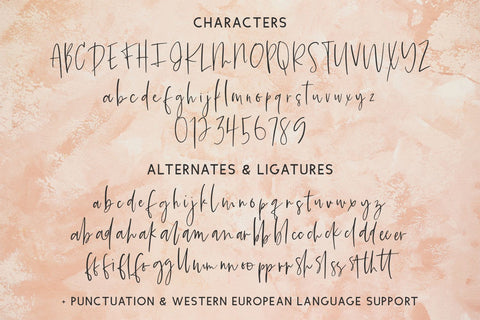 CHARACTERS
ABCDEFGHIJKLMNOPQRSTUVWXYZ
abcdefghijklmnopqrstuvwxyz
0123456789
ALTERNATES & LIGATURES
abcdefghijklmnopqrstuvwxyz
abadahakalamanarbbblccchckclddecer
fffiflfoggllumnnoopprrshslssstthtt
+ PUNCTUATION & WESTERN EUROPEAN LANGUAGE SUPPORT